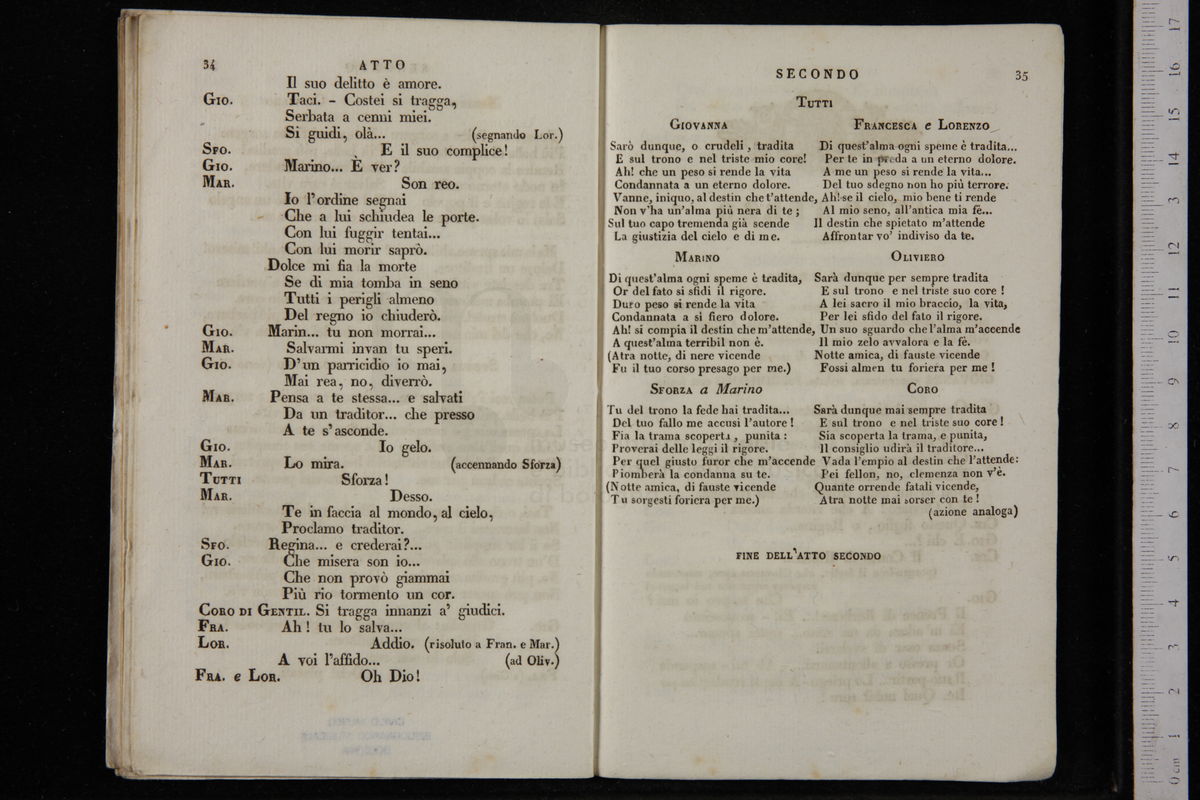 34 ATTO
Il suo delitto è amore.
GIO. Taci. - Costei si tragga,
Serbata a cenni miei.
Si guidi, olà... (segnando Lor.)
SFO. E il suo complice!
GIO. Marino... È ver?
MAR. Son reo.
Io l'ordine segnai
Che a lui schiudea le porte.
Con lui fuggir tentai...
Con lui morir saprò.
Dolce mi fia la morte
Se di mia tomba in seno
Tutti i perigli almeno
Del regno io chiuderò.
GIO. Marin... tu non morrai...
MAR. Salvarmi invan tu speri.
GIO. D'un parricidio io mai,
Mai rea, no, diverrò.
MAR. Pensa a te stessa... e salvati
Da un traditor... che presso
A te s'asconde.
GIO. Io gelo.
MAR. Lo mira. (accennando Sforza)
TUTTI Sforza!
MAR. Desso.
Te in faccia al mondo, al cielo,
Proclamo traditor.
SFO. Regina... e crederai?...
GIO. Che misera son io...
Che non provò giammai
Più rio tormento un cor.
CORO DI GENTIL. Si tragga innanzi a' giudici.
FRA. Ah! tu lo salva...
LOR. Addio. (risoluto a Fran. e Mar.)
A voi l'affido... (ad Oliv.)
FRA. e LOR. Oh Dio!
SECONDO 35
TUTTI
GIOVANNA
Sarò dunque, o crudeli, tradita
E sul trono e nel triste mio core!
Ah! che un peso si rende la vita
Condannata a un eterno dolore.
Vanne, iniquo, al destin che t'attende,
Non v'ha un'alma più nera di te;
Sul tuo capo tremenda già scende
La giustizia del cielo e di me.
FRANCESCA e LORENZO
Di quest'alma ogni speme è tradita...
Per te in preda a un eterno dolore.
A me un peso si rende la vita...
Del tuo sdegno non ho più terrore.
Ah! se il cielo, mio bene ti rende
Al mio seno, all'antica mia fè...
Il destin che spietato m'attende
Affrontar vo' indiviso da te.
MARINO
Di quest'alma ogni speme è tradita,
Or del fato si sfidi il rigore.
Duro peso si rende la vita
Condannata a sì fiero dolore.
Ah! si compia il destin che m'attende,
A quest'alma terribil non è.
(Atra notte, di nere vicende
Fu il tuo corso presago per me.)
OLIVIERO
Sarà dunque per sempre tradita
E sul trono e nel triste suo core!
A lei sacro il mio braccio, la vita,
Per lei sfido del fato il rigore.
Un suo sguardo che l'alma m'accende
Il mio zelo avvalora e la fè.
Notte amica, di fauste vicende
Fossi almen tu foriera per me!
SFORZA a Marino
Tu del trono la fede hai tradita...
Del tuo fallo me accusi l'autore!
Fia la trama scoperta, punita:
Proverai delle leggi il rigore.
Per quel giusto furor che m'accende
Piomberà la condanna su te.
(Notte amica, di fauste vicende
Tu sorgesti foriera per me.)
CORO
Sarà dunque mai sempre tradita
E sul trono e nel triste suo core!
Sia scoperta la trama, e punita,
Il consiglio udirà il traditore...
Vada l'empio al destin che l'attende:
Pei fellon, no, clemenza non v'è.
Quante orrende fatali vicende,
Atra notte mai sorser con te!
(azione analoga)
FINE DELL'ATTO SECONDO